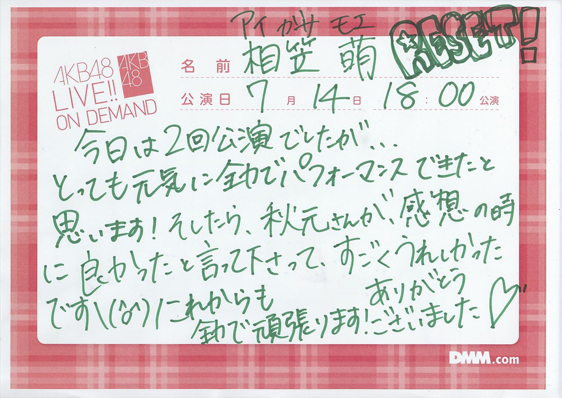 アイガサ モエ
RESET!
AKB48
LIVE!!
ON DEMAND
AKB
48
名前 相笠 萌
公演日 7月14日 18:00公演
今日は2回公演でしたが...
とっても元気に全力でパフォーマンスできたと
思います！そしたら、秋元さんが、感想の時
に良かったと言って下さって、すごくうれしかった
です\(^^)/これからも ありがとう
全力で頑張ります！ございました♡
DMM.com